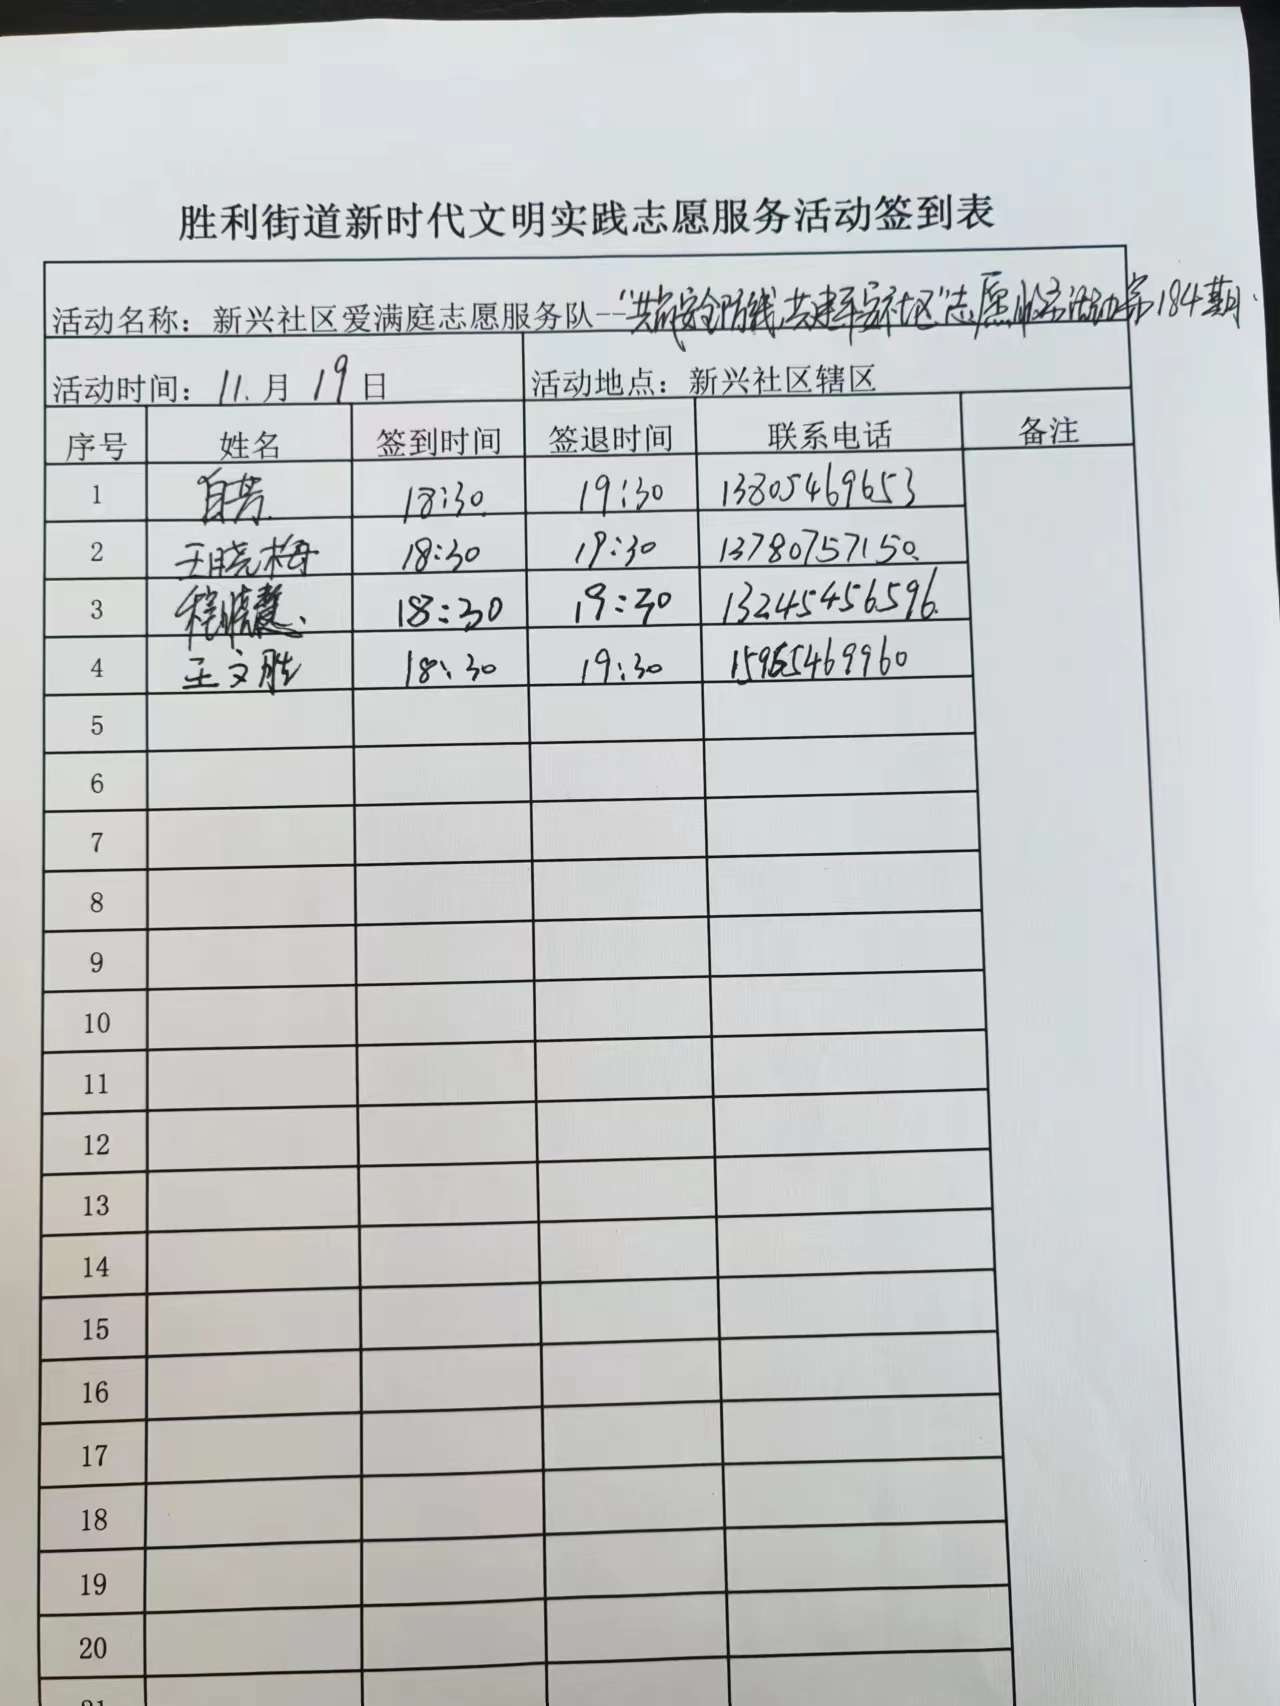 胜利街道新时代文明实践志愿服务活动签到表
活动名称：新兴社区爱满庭志愿服务队--“共筑安全防线,共建平安社区”志愿服务活动第184期.
活动时间：11.月19日 活动地点：新兴社区辖区
序号 姓名 签到时间 签退时间 联系电话 备注
1 白芳 18:30 19:30 13805469653
2 王晓梅 18:30 19:30 13780757150
3 程晓慧 18:30 19:30 13245456596
4 王文胜 18:30 19:30 15965469960
5
6
7
8
9
10
11
12
13
14
15
16
17
18
19
20
21